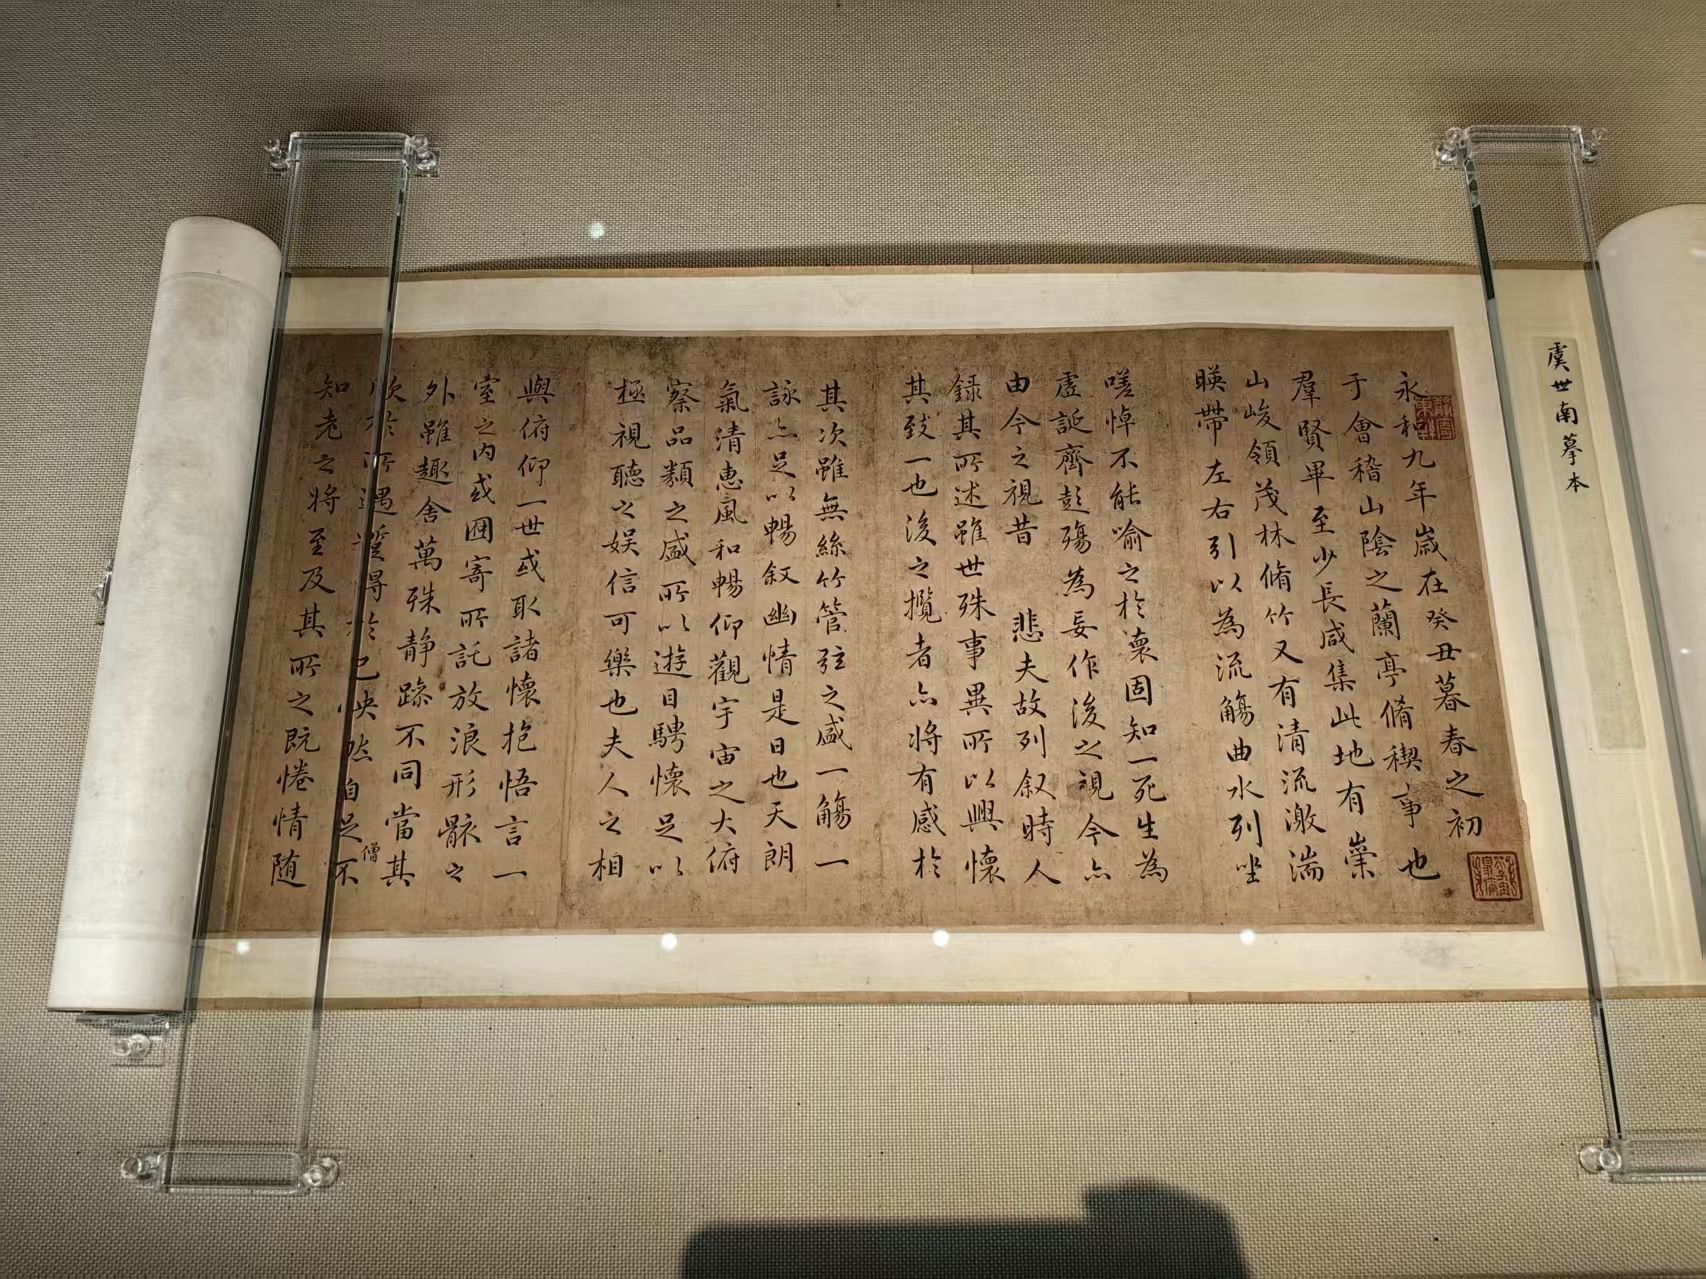 虞世南摹本
永和九年歲在癸丑暮春之初
于會稽山陰之蘭亭脩稧事也
羣賢畢至少長咸集此地有崇
山峻領茂林脩竹又有清流激湍
暎帶左右引以為流觴曲水列坐
嗟悼不能喻之於懷固知一死生為
虛誕齊彭殤為妄作後之視今亦
由今之視昔悲夫故列叙時人
錄其所述雖世殊事異所以興懷
其致一也後之攬者亦將有感於
其次雖無絲竹管弦之盛一觴一
詠亦足以暢叙幽情是日也天朗
氣清惠風和暢仰觀宇宙之大俯
察品類之盛所以遊目騁懷足以
極視聽之娛信可樂也夫人之相
與俯仰一世或取諸懷抱悟言一
室之內或因寄所託放浪形骸之
外雖趣舍萬殊静躁不同當其
僧
欣於所遇蹔得於己怏然自足不
知老之將至及其所之既惓情随